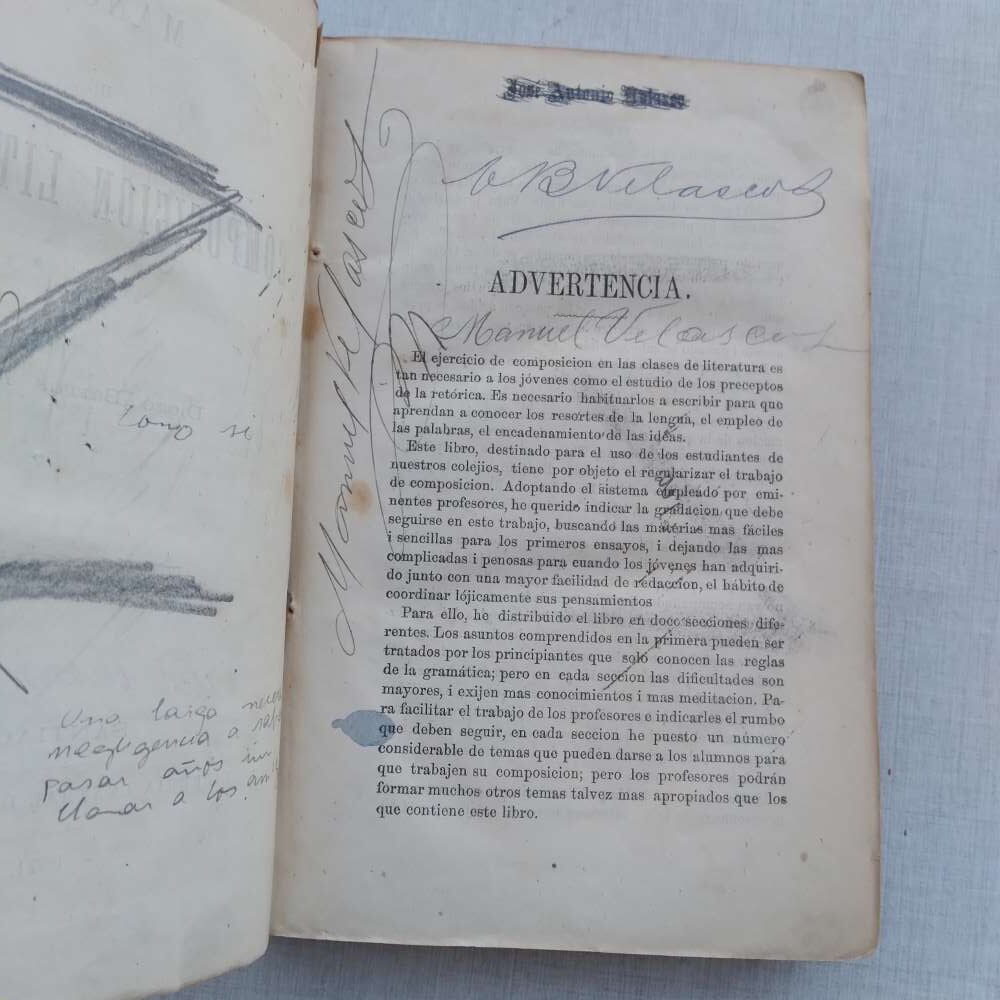 Como se
Una larga
negligencia a
pasar años
llamar a los
José Antonio
B Velasco
ADVERTENCIA.
Manuel Velasco
Manuel Velasco
El ejercicio de composicion en las clases de literatura es
tan necesario a los jóvenes como el estudio de los preceptos
de la retórica. Es necesario habituarlos a escribir para que
aprendan a conocer los resortes de la lengua, el empleo de
las palabras, el encadenamiento de las ideas.
Este libro, destinado para el uso de los estudiantes de
nuestros colejios, tiene por objeto el regularizar el trabajo
de composicion. Adoptando el sistema empleado por emi-
nentes profesores, he querido indicar la gradacion que debe
seguirse en este trabajo, buscando las materias mas fáciles
i sencillas para los primeros ensayos, i dejando las mas
complicadas i penosas para cuando los jóvenes han adquiri-
do junto con una mayor facilidad de redaccion, el hábito de
coordinar lójicamente sus pensamientos
Para ello, he distribuido el libro en doce secciones dife-
rentes. Los asuntos comprendidos en la primera pueden ser
tratados por los principiantes que solo conocen las reglas
de la gramática; pero en cada seccion las dificultades son
mayores, i exijen mas conocimientos i mas meditacion. Pa-
ra facilitar el trabajo de los profesores e indicarles el rumbo
que deben seguir, en cada seccion he puesto un número
considerable de temas que pueden darse a los alumnos para
que trabajen su composicion; pero los profesores podrán
formar muchos otros temas talvez mas apropiados que los
que contiene este libro.